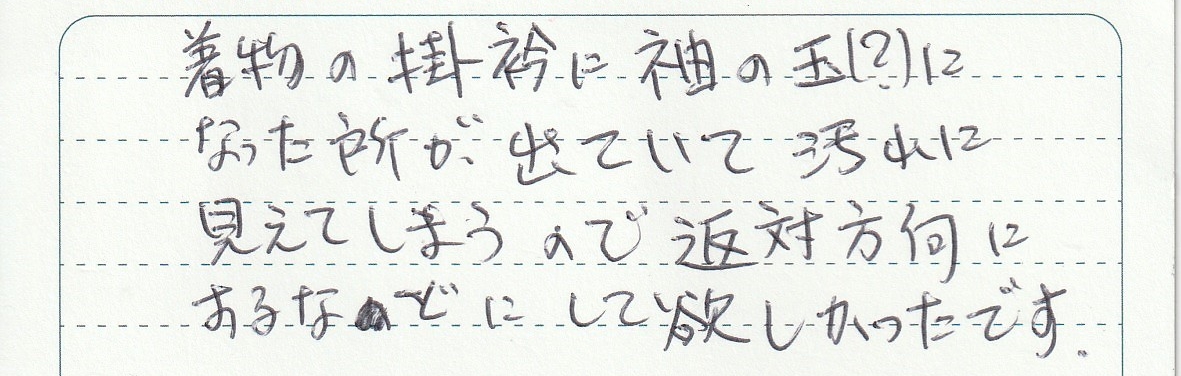 着物の掛衿に袖の玉(?)に
なった所が、出ていて汚れに
見えてしまうので返対方向に
あるなどにして欲しかったです。